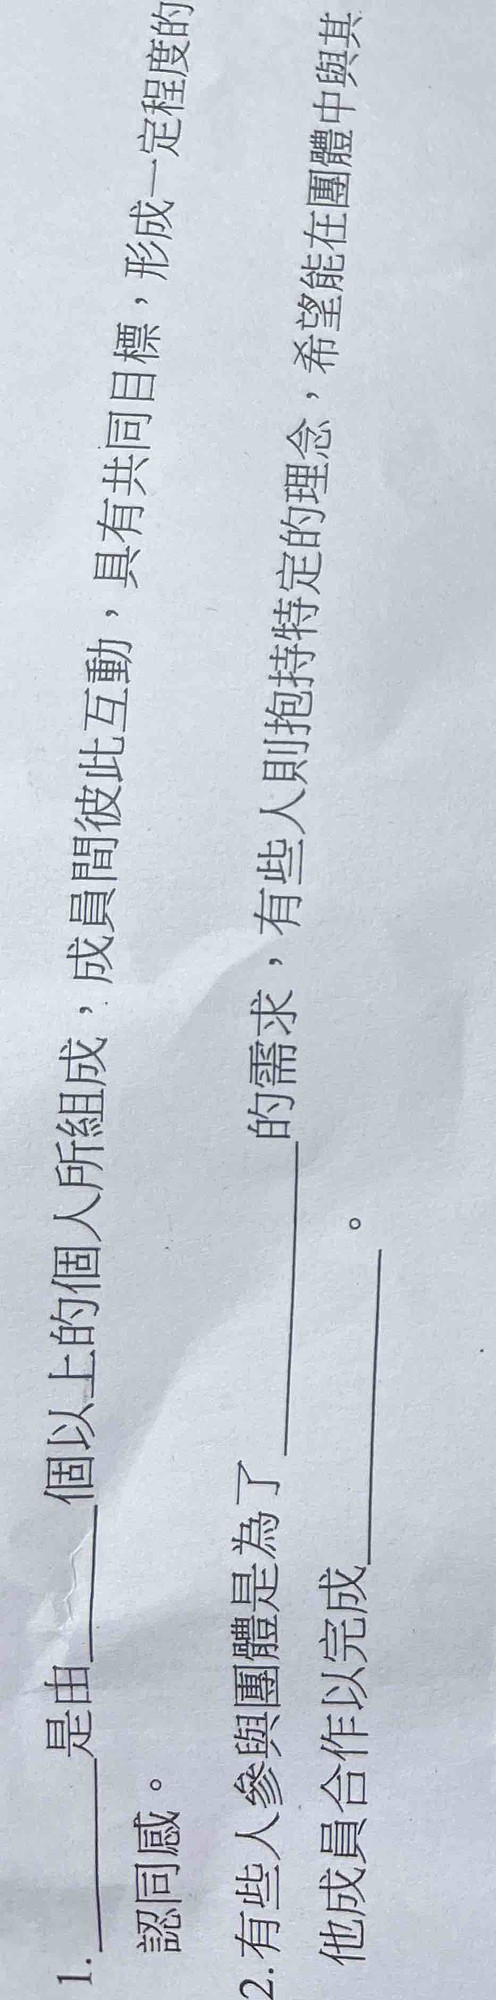 1.________是由______個以上的個人所組成，成員間彼此互動，具有共同目標，形成一定程度的
認同感。
2.有些人參與團體是為了____________的需求，有些人則抱持特定的理念，希望能在團體中與其
他成員合作以完成____________。